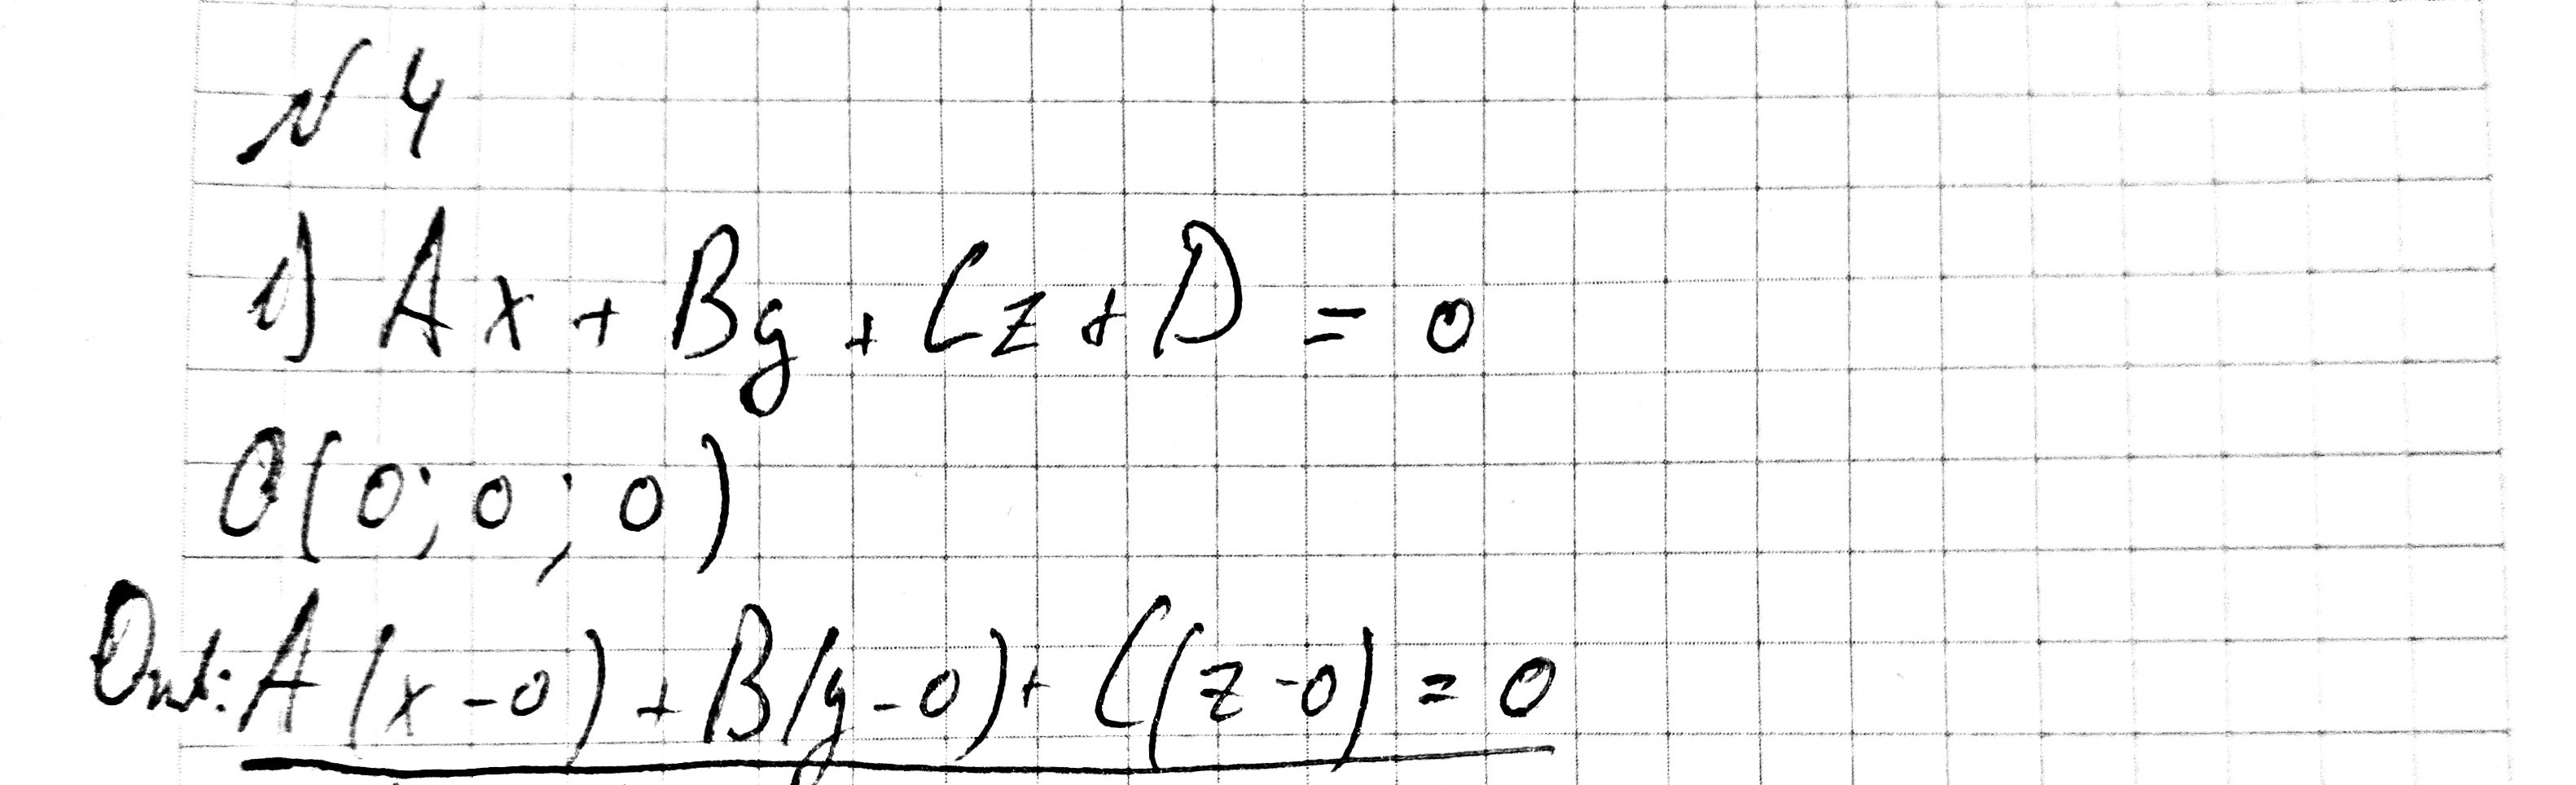 № 4
1) Ax + By + Cz + D = 0
O(0; 0; 0)
Отв: A(x-0) + B(y-0) + C(z-0) = 0